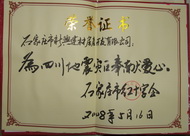 荣誉证书
石家庄市
建材
有限公司：
为四川地震灾区奉献爱心。
石家庄市红十字会
2008年5月16日